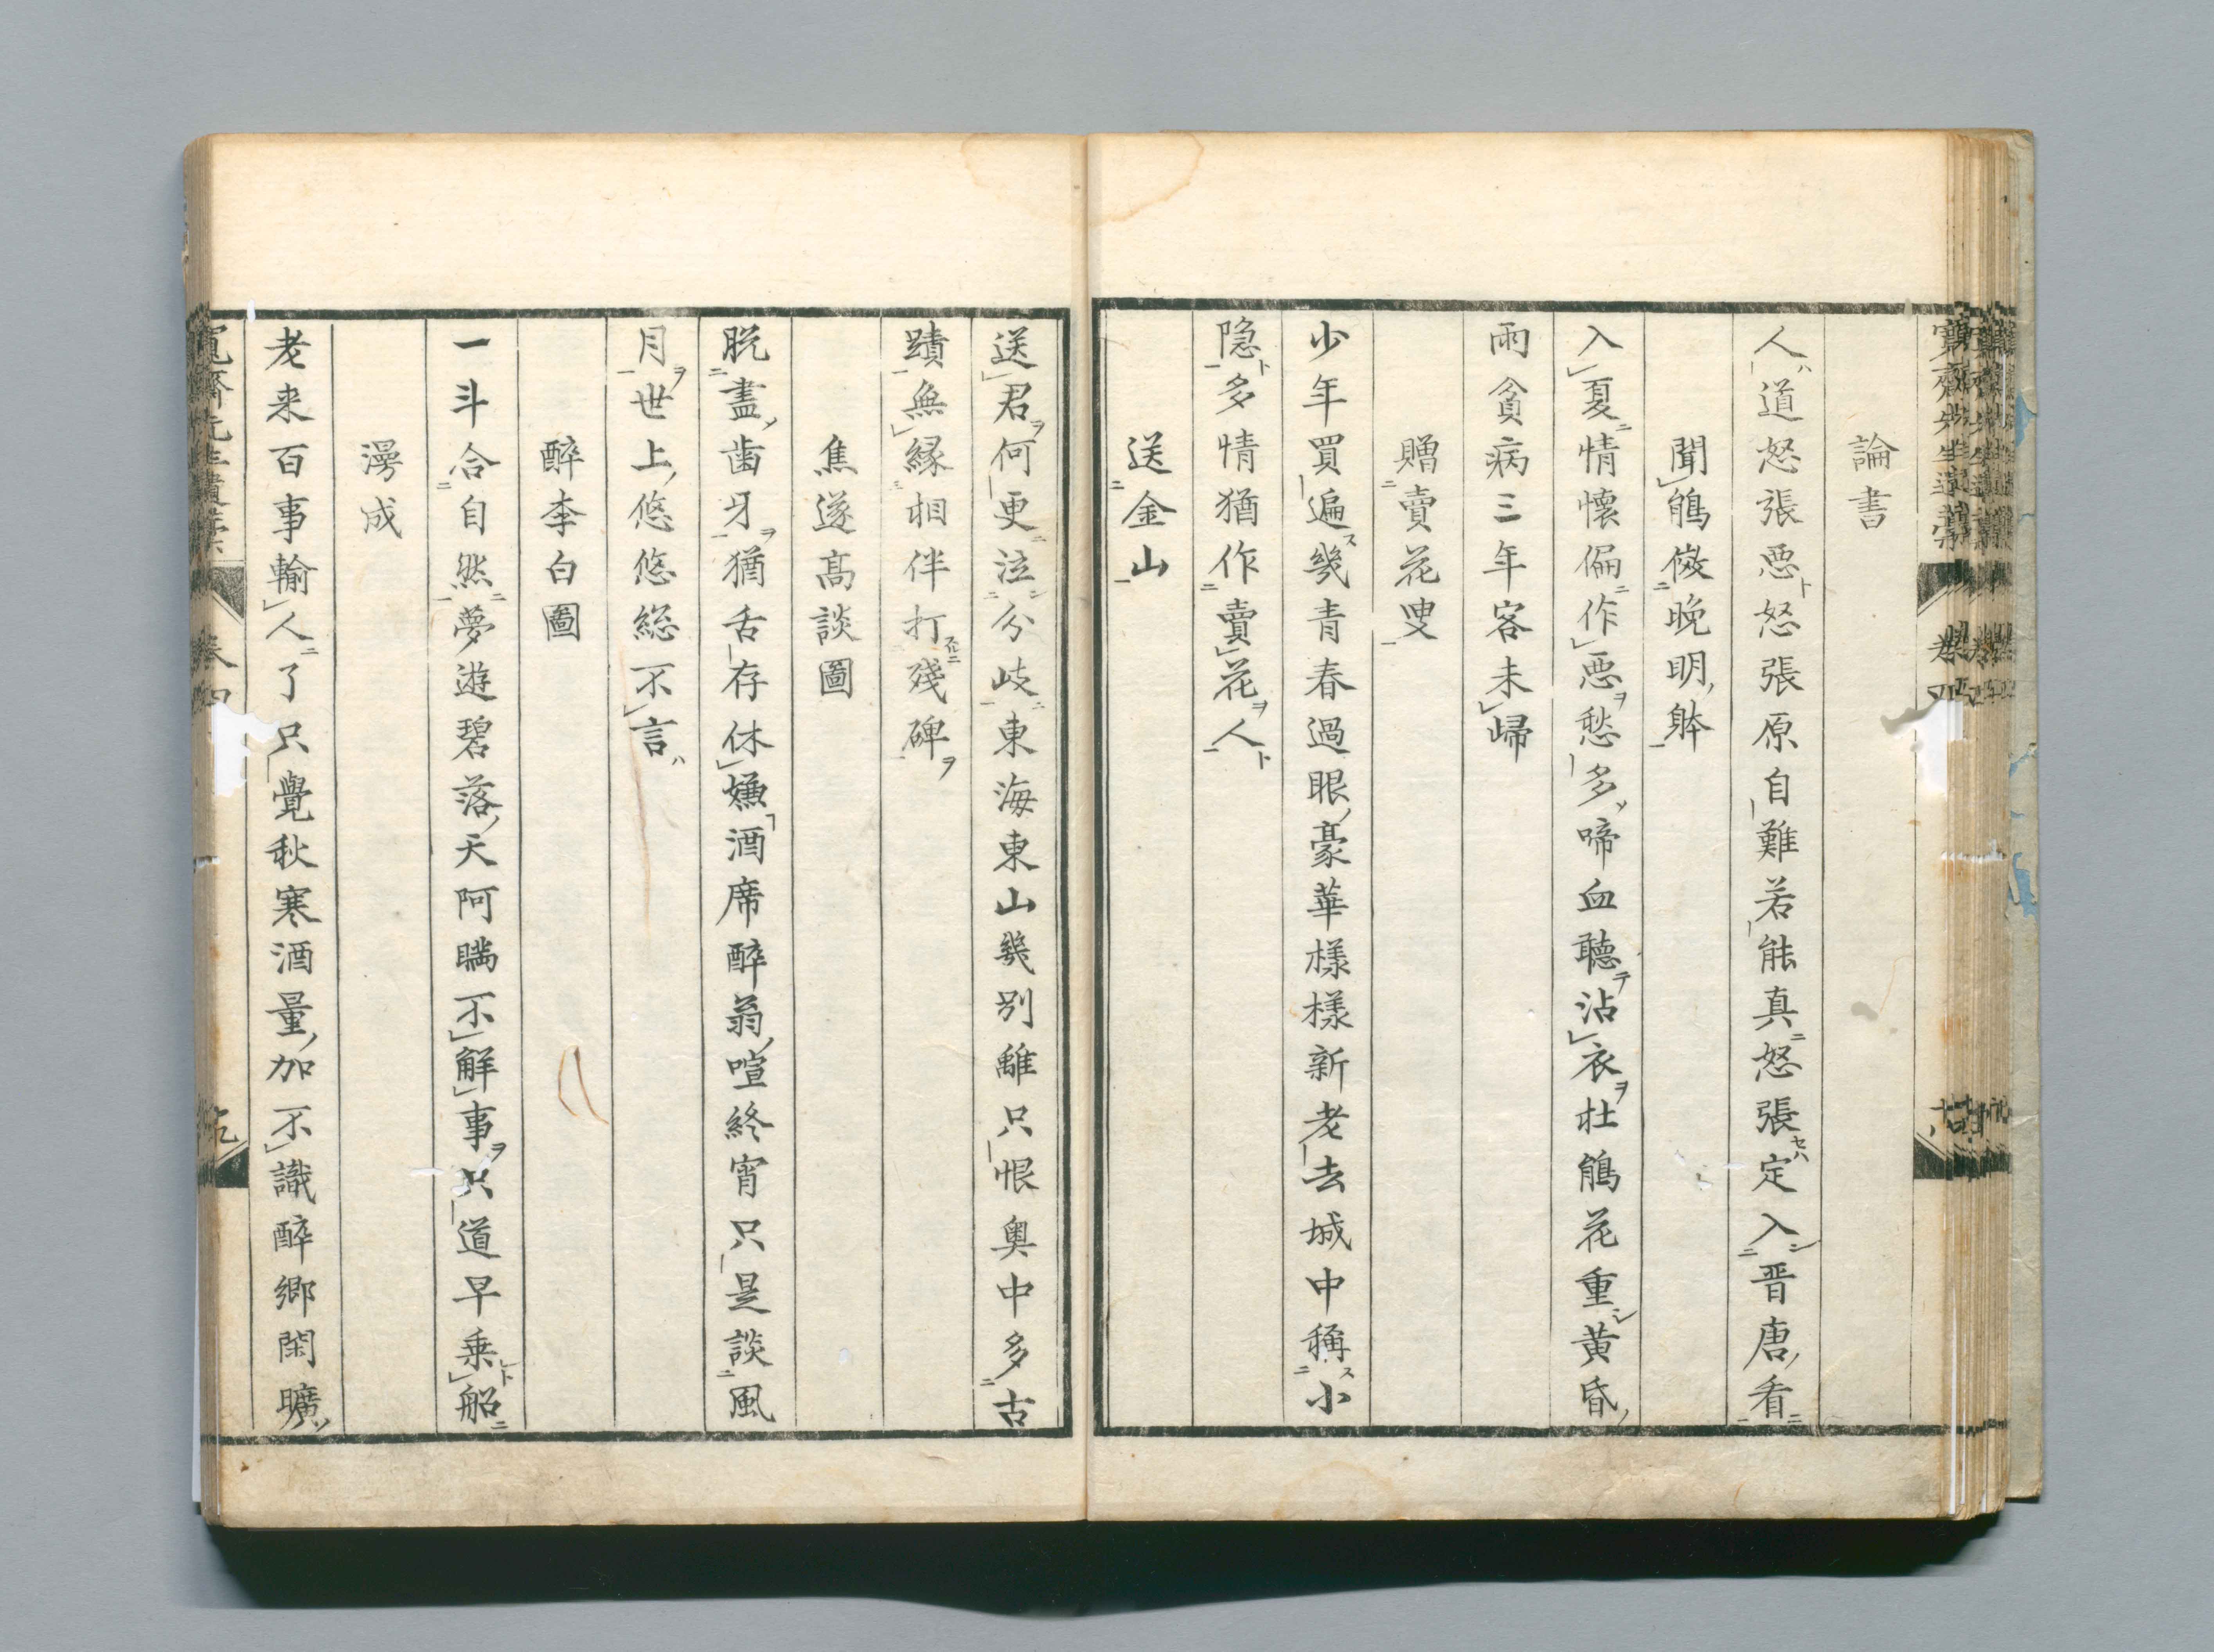 論書
人道怒張惡怒張原自難若能真怒張定入晋唐看
聞鵑倣晚明躰
入夏情懷偏作惡愁多啼血聽沾衣杜鵑花重黄昏
雨貧病三年客未歸
贈賣花叟
少年買遍幾青春過眼豪華樣樣新老去城中稱小
隐多情猶作賣花人
送金山
送君何更泣分岐東海東山幾別離只恨奥中多古
蹟無縁相伴打殘碑
焦遂高談圖
脱盡歯牙猶舌存休嫌酒席醉翁喧終宵只是談風
月世上悠悠総不言
醉李白圖
一斗合自然夢遊碧落天阿瞞不解事只道早乗船
漫成
老来百事輸人了只覺秋寒酒量加不識醉郷閑曠
寛齋先生遺稾 卷四